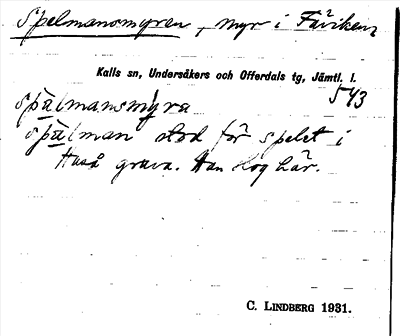 Spelmansmyren, myr i Fäviken
Kalls sn, Undersåkers och Offerdals tg, Jämtl. l.
543
spä̀lmansmýra
spä̀lman stod för spelet i
Huså gruva. Han slog här.
C. LINDBERG 1931.